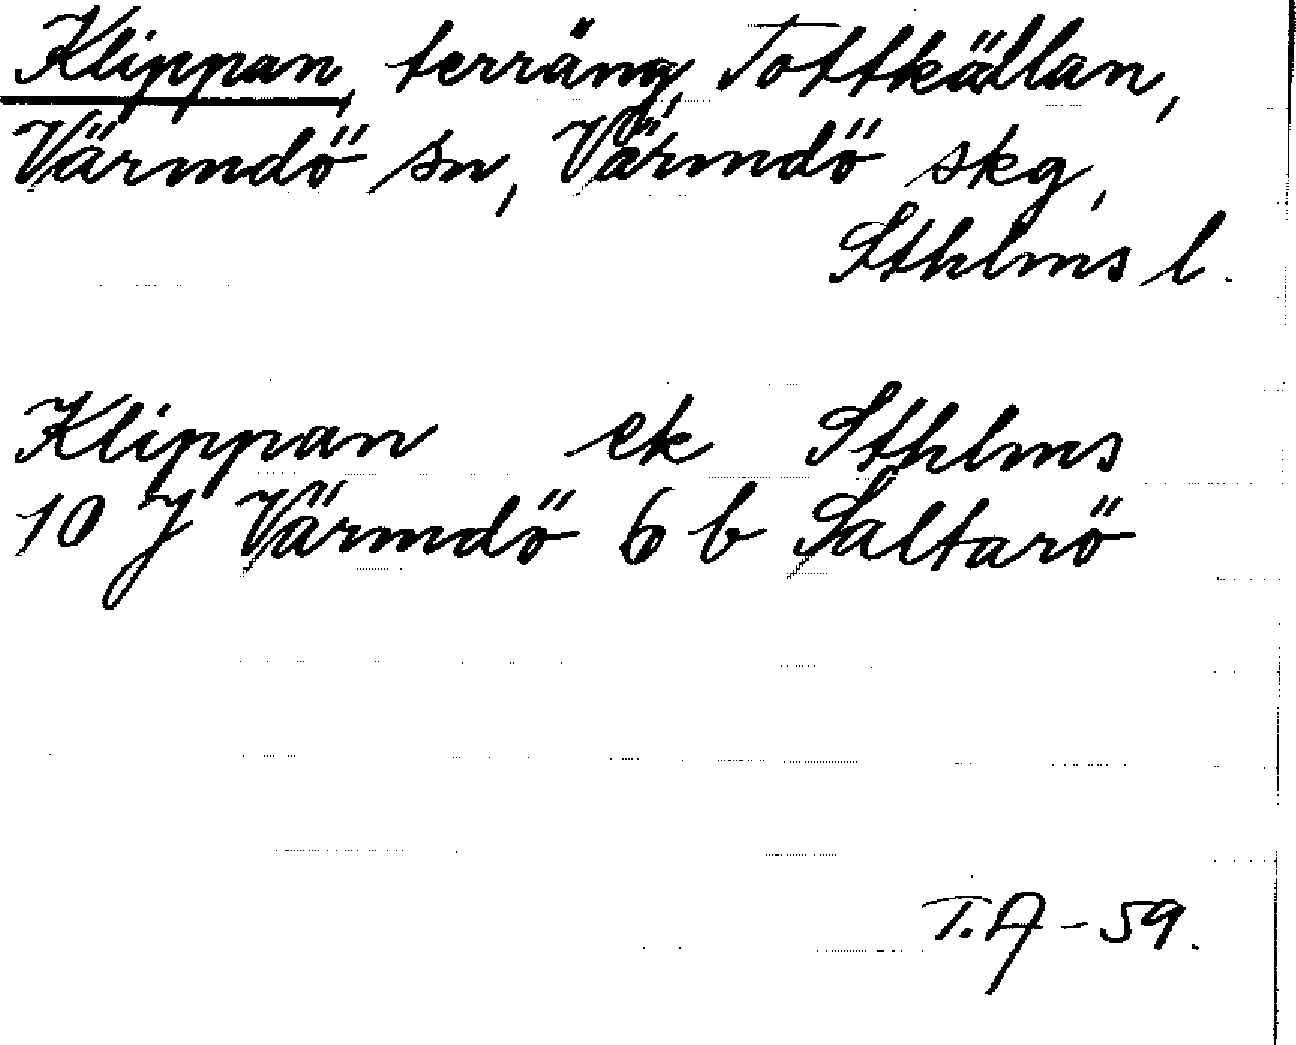 Klippan, terräng, Tottkällan,
Värmdö sn, Värmdö skg,
Sthlms l.
Klippan ek Sthlms
10 J Värmdö 6 b Saltarö
T.A - 59.